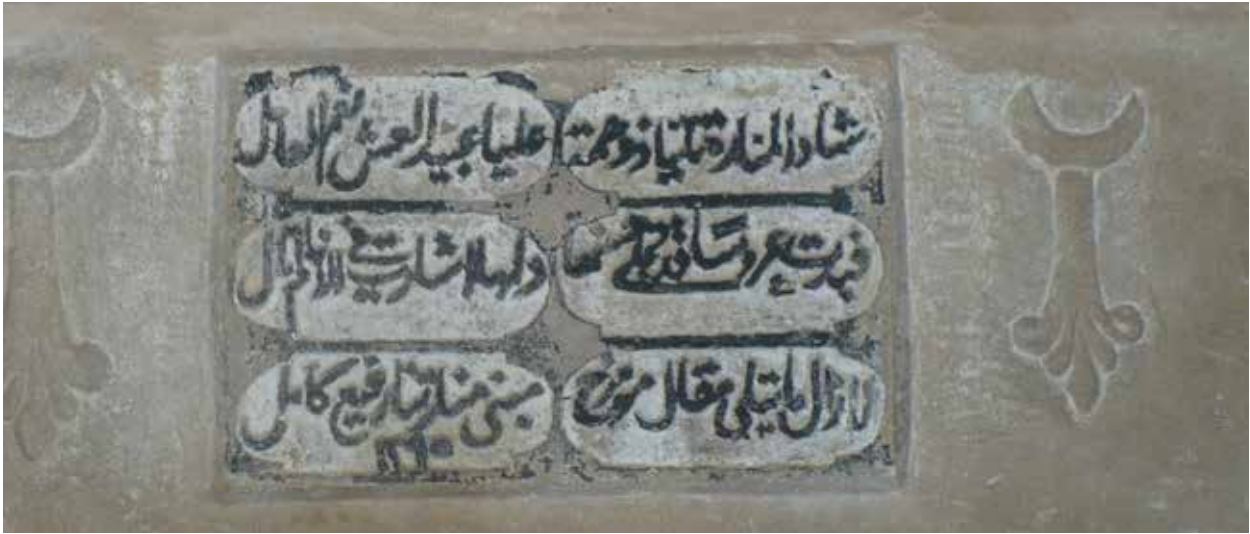 شاد المنارة تكية ذو همة عليا عبيد العش نعم العامل
فبدت عروسا قد تجلى حسنها ولها اشارت في الانامل
لا زال ما يتلى مقال مؤرخ مبنى منارتنا رفيع كامل